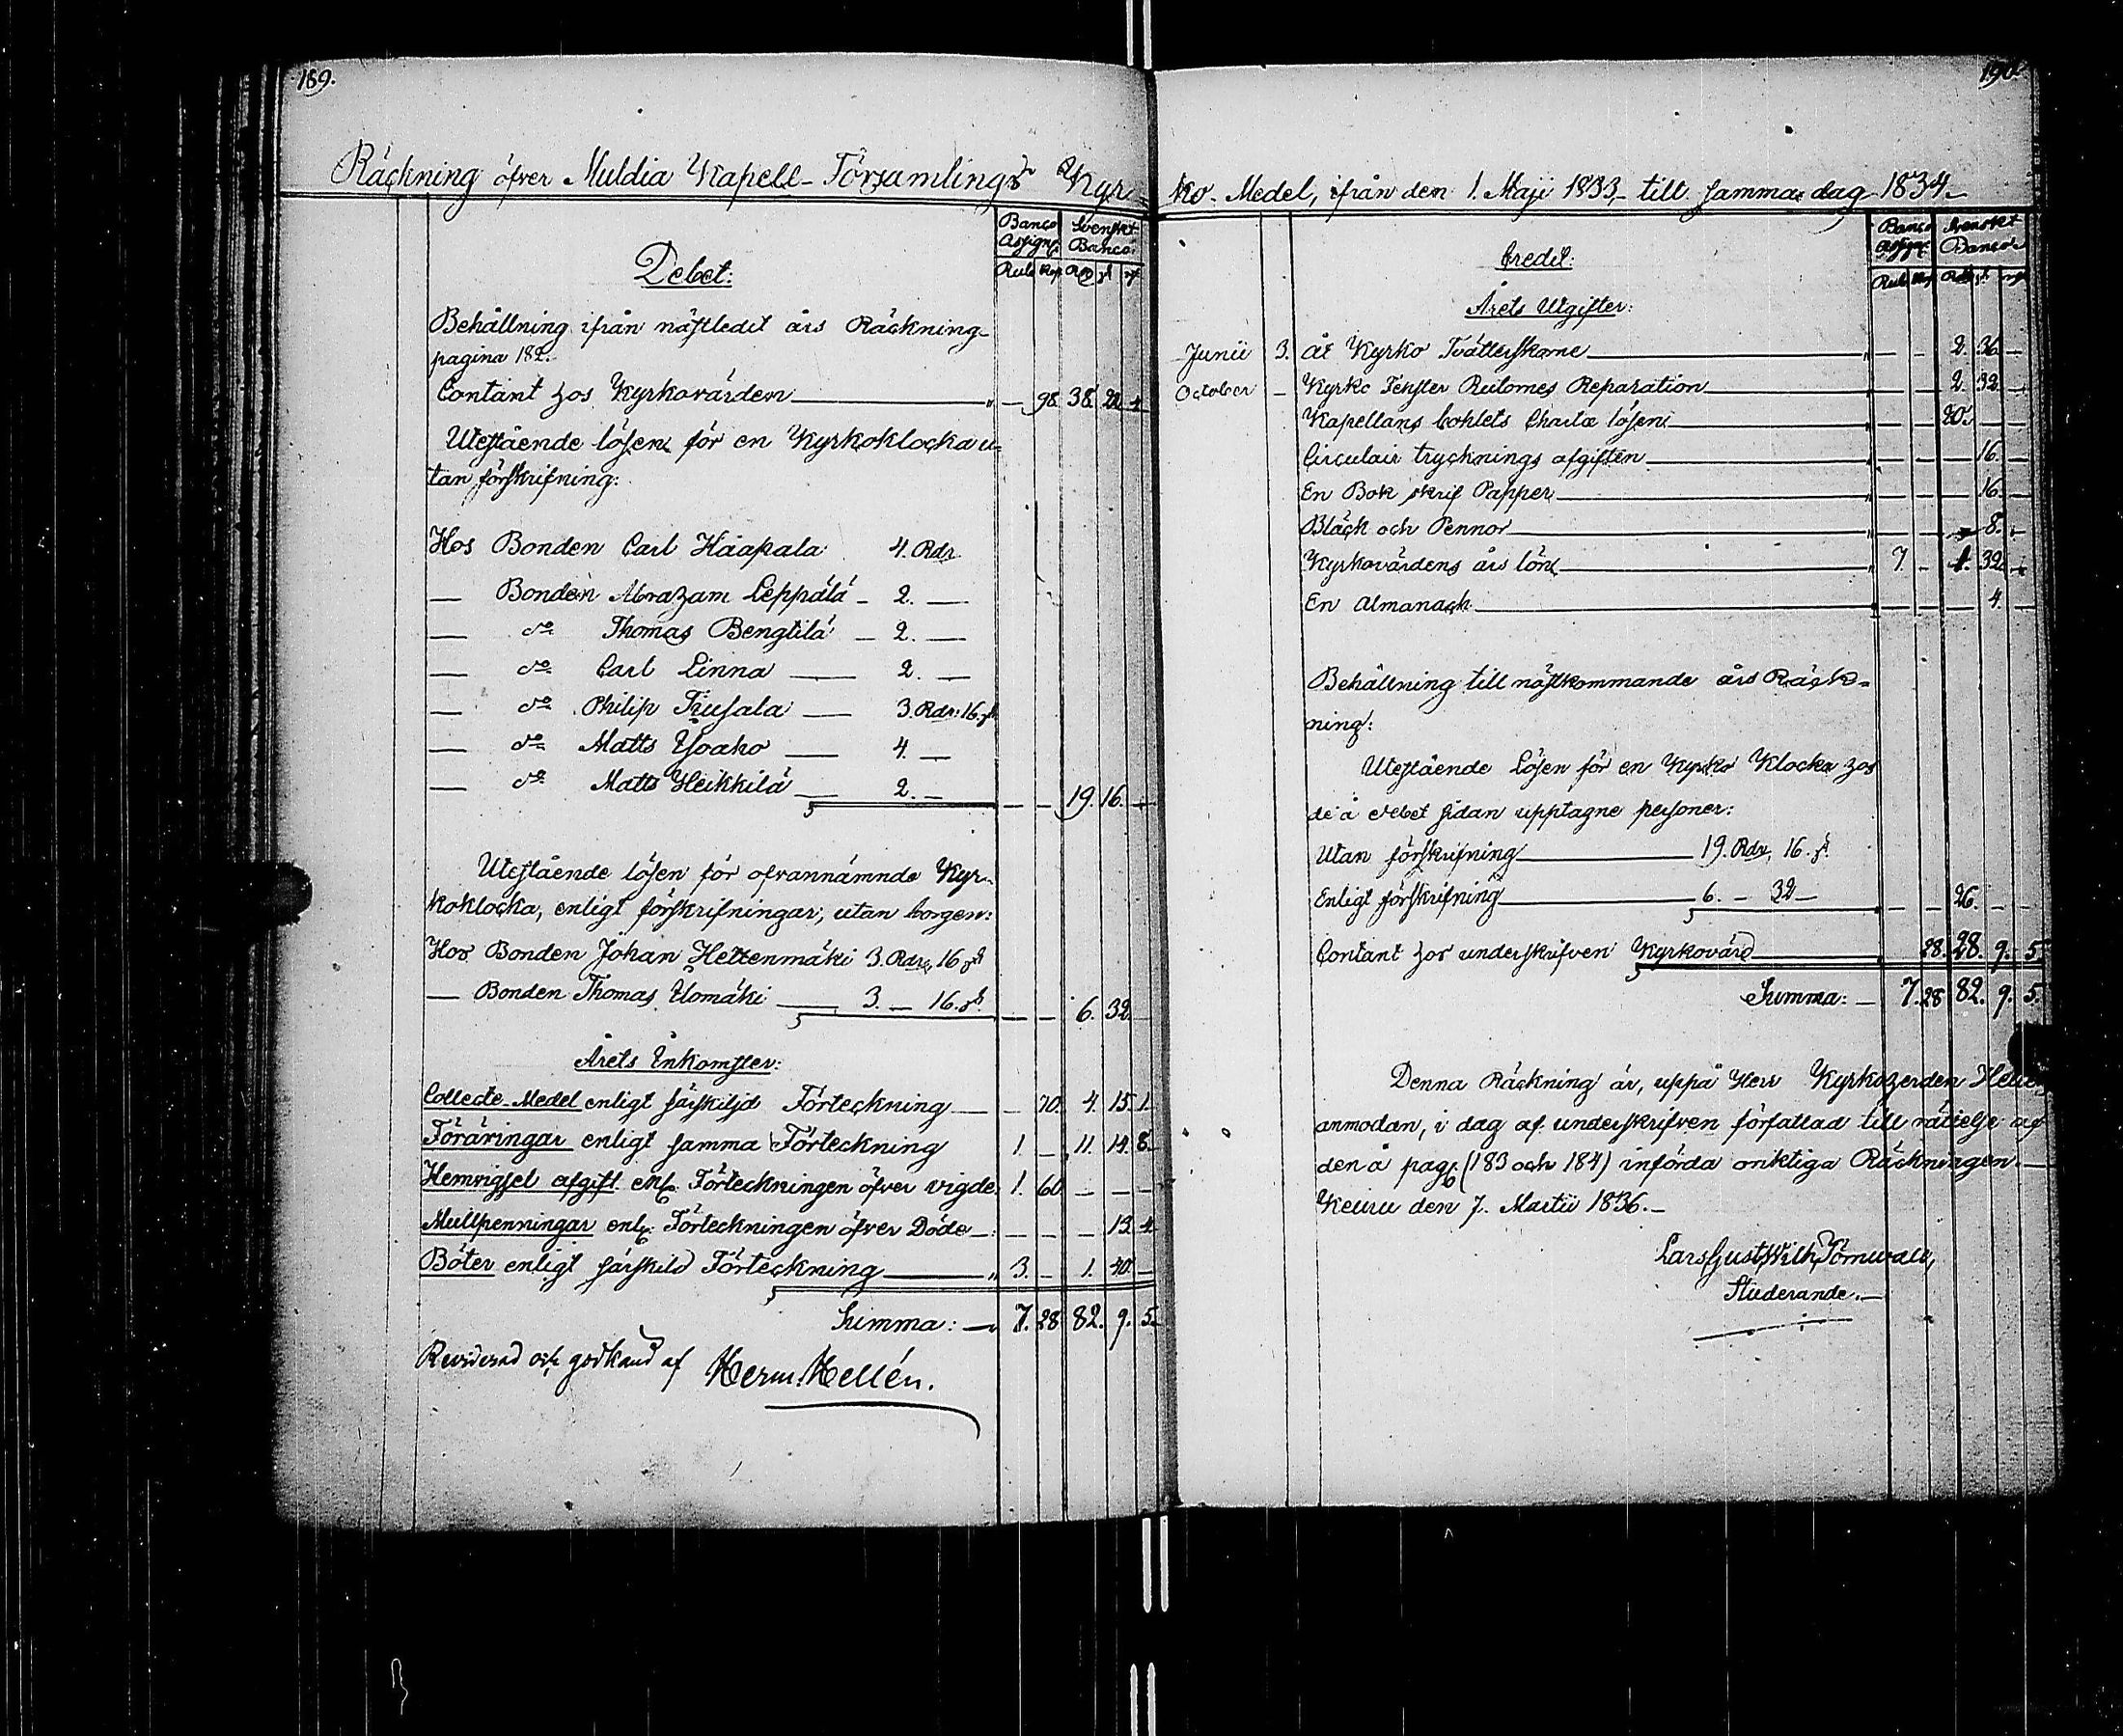 189.
Räckning öfver Muldia Kapell-Församlings Kyr-
Debet:
Banco Assign:
Svenskt Banco:
Rub. Kop. Rdr sk. rst.
Behållning ifrån nästledit års Räckning
pagina 182.
Contant hos Kyrkovärden — 98. 38. 22. 4.
Utestående lösen för en Kyrkoklocka u-
tan förskrifning:
Hos Bonden Carl Haapala 4. Rdr
— Bonden Abraham Leppälä — 2. —
— do Thomas Bengtilä — 2. —
— do Carl Linna — 2. —
— do Philip Tiusala — 3. Rdr: 16. sk
— do Matts Yloaho — 4. —
— do Matts Heikkilä — 2. — — — 19. 16. —
Utestående lösen för ofvannämnde Kyr-
koklocka, enligt förskrifningar, utan borgen:
Hos Bonden Johan Hettenmäki 3. Rdr, 16 sk
— Bonden Thomas Ylomäki — 3. — 16. sk. — — 6. 32. —
Årets Inkomster:
Collecte-Medel enligt särskiljd Förteckning — — 70. 4. 15. 1.
Föräringar enligt samma Förteckning 1. — 11. 14. 8.
Hemvigsel afgift enl. Förteckningen öfver vigde 1. 60. — — —
Mullpenningar enl. Förteckningen öfver Döde — — — — 13. 4.
Böter enligt särskild Förteckning — 3. — 1. 40. —
Summa: — 7. 28 82. 9. 5.
Reviderad och godkänd af Herm. Hellén.
190.
ko-Medel, ifrån den 1. Maji 1833, till samma dag 1834.
Credit:
Banco Assign:
Svenskt Banco
Rub. Kop. Rdr sk. rst.
Årets Utgifter:
Junii 3. Åt Kyrko Tvätterskorne — — — 2. 36. —
October — Kyrko Fenster Rutornes Reparation — — — 2. 32. —
Kapellans Charta lösen — — — 20. — —
Circulair trycknings afgiften — — — — 16. —
En Bok skrif Papper — — — — 16. —
Bläck och Pennor — — — — 8. —
Kyrkovärdens års lön — 7. — 1. 32. —
En Almanach — — — — 4. —
Behållning till nästkommande års Räck-
ning:
Utestående Lösen för en Kyrko Klocka hos
de å debet sidan upptagne personer:
Utan förskrifning — 19. Rdr, 16. sk.
Enligt förskrifning — 6. — 32 — — — 26. — —
Contant hos underskrifven Kyrkovärd — 28. 28. 9. 5.
Summa: — 7. 28 82. 9. 5.
Denna Räckning är, uppå Herr Kyrkoherden
anmodan, i dag af underskrifven författad till rättelse af
den å pag. (183 och 184) införda oriktiga Räckningen. —
Keuru den 7. Martii 1836. —
Lars Gust. Wilh. Törnwall,
Studerande. —